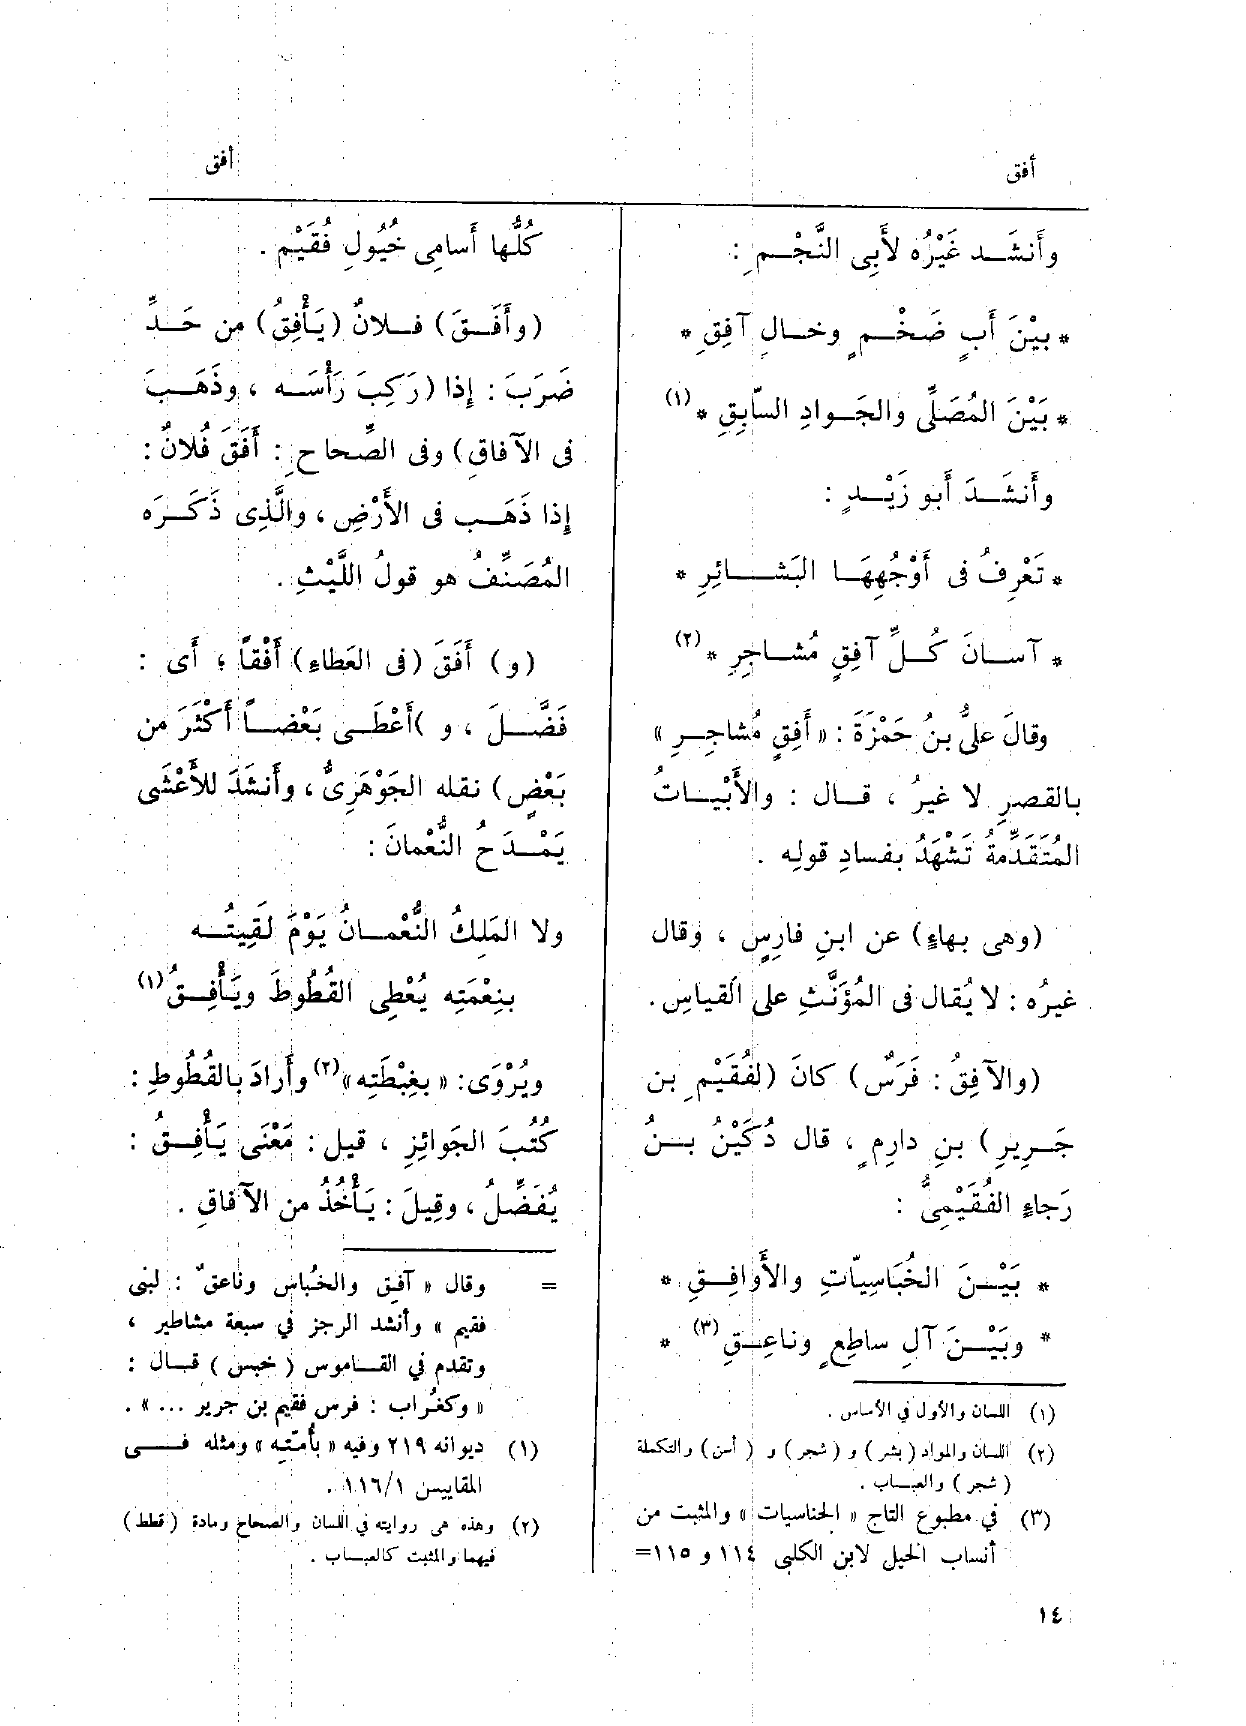 أفق
أفق
وأَنشَـد غَيْرُه لأَبِى النَّجْـمِ :
* بيْنَ أَبٍ ضَخْـمٍ وخالِ آفِقِ *
* بَيْنَ المُصَلِّى والجَوادِ السّابِقِ * (١)
وأَنشَـدَ أَبو زَيْـدٍ :
* تَعْرِفُ فى أَوْجُهِهَـا البَشـائِرِ *
* آسـانَ كُـلِّ آفِقٍ مُشـاجِرِ * (٢)
وقالَ علىُّ بنُ حَمْزَةَ : « أَفِقٍ مُشاجِـرِ »
بالقصرِ لا غيرُ ، قـال : والأَبْيـاتُ
المُتَقَدِّمةُ تَشْهَدُ بفسادِ قولِه .
(وهى بهاءٍ) عن ابنِ فارِسٍ ، وقال
غيرُه : لا يُقال فى المُؤَنَّثِ على القياسِ .
(والآفِقُ : فَرَسٌ) كانَ (لفُقَيْمِ بن
جَـرِيرِ) بنِ دارِمٍ ، قال دُكَيْنُ بـنُ
رَجاءٍ الفُقَيْمِىُّ :
* بَيْـنَ الخُبَاسِيّاتِ والأَوافِـقِ *
* وبَيْـنَ آلِ ساطِعٍ وناعِـقِ (٣) *
(١) اللسان والأول في الأساس .
(٢) اللسان والمواد (بشر) و (شجر) و ( أسن) والتكملة
( شجر ) والعبـاب .
(٣) في مطبوع التاج « الخناسيات » والمثبت من
أنساب الخيل لابن الكلبى ١١٤ و ١١٥=
كُلُّها أَسامِى خُيُولِ فُقَيْمٍ .
(وأَفَـقَ) فـلانٌ (يَأْفِقُ) من حَـدِّ
ضَرَبَ : إِذا (رَكِبَ رَأْسَـه ، وذَهَـبَ
فى الآفاقِ) وفى الصِّحاحِ : أَفَقَ فُلانٌ :
إِذا ذَهَـب فى الأَرْضِ ، والَّذِى ذَكَـرَه
المُصَنِّفُ هو قولُ اللَّيْثِ .
(و) أَفَقَ (فى العَطاءِ) أَفْقاً ؛ أَى :
فَضَّـلَ ، و )أَعْطَـى بَعْضـاً أَكْثَرَ من
بَعْضٍ) نقله الجَوْهَرِىُّ ، وأَنشَدَ للأَعْشَى
يَمْـدَحُ النُّعْمانَ :
ولا المَلِكُ النُّعْمـانُ يَوْمَ لَقِيتُـه
بنِعْمَتِه يُعْطِى القُطُوطَ ويَأْفِـقُ (١)
ويُرْوَى : « بغِبْطَتِه » (٢) وأَرادَ بالقُطُوطِ :
كُتُبَ الجَوائِزِ ، قيل : مَعْنَى يَأْفِـقُ :
يُفَضِّلُ ، وقِيلَ : يَأْخُذُ من الآفاقِ .
= وقال « آفـق والخبـاس وناعق : لبنى
فقيم » وأنشد الرجز في سبعة مشاطير ،
وتقدم في القـاموس ( خبس ) قـال :
« وكغُراب : فرس فقيم بن جرير ... » .
(١) ديوانه ٢١٩ وفيه « بأُمَّتِه » ومثله فـى
المقاييس ١١٦/١ .
(٢) وهذه هى روايته في اللسان والصحاح ومادة (قطط)
فيهما والمثبت كالعبـاب .
١٤